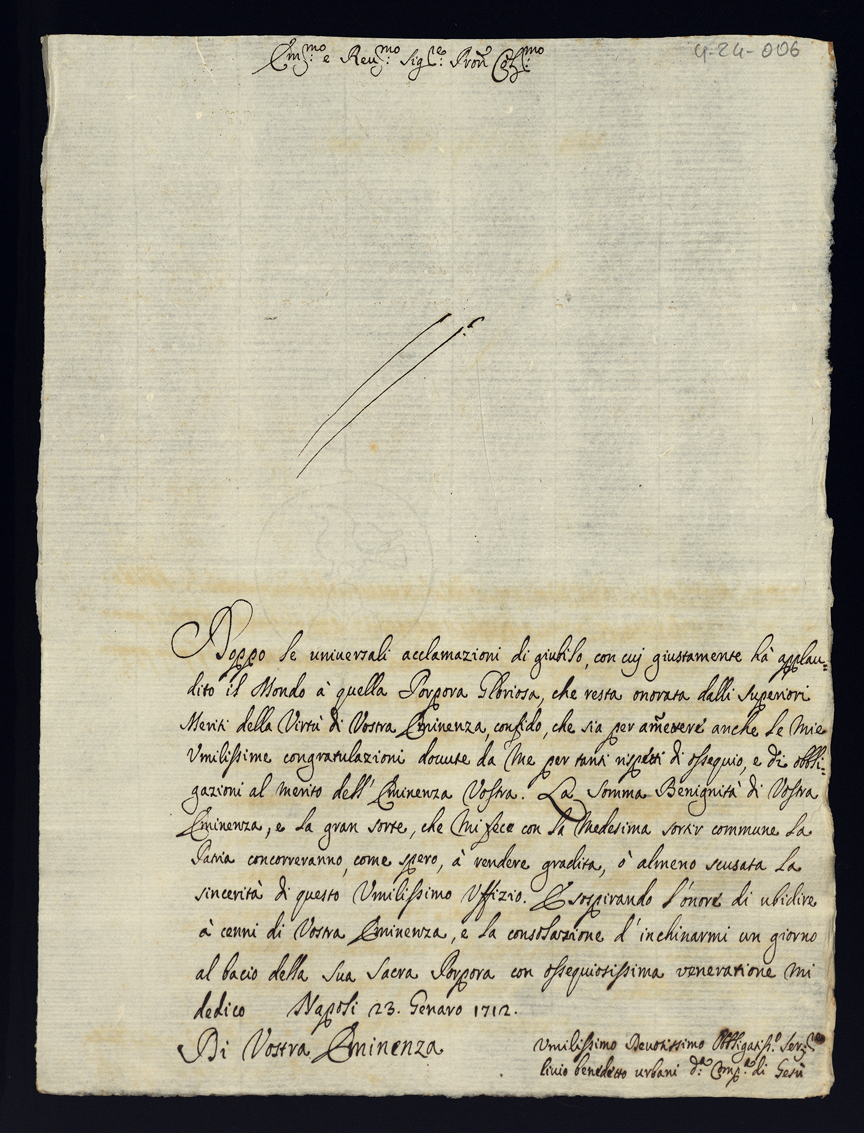 Em.mo e Reu.mo Sig.re Pron Col.mo
4-24-006
Doppo le universali acclamazioni di giubilo, con cuj giustamente hà applau=
dito il Mondo à quella Porpora Gloriosa, che resta onorata dalli Superiori
Meriti della Virtù di Vostra Eminenza, confido, che sia per amettere anche le Mie
Vmilissime congratulazioni dovute da Me per tanti rispetti di ossequio, e di obbli=
gazioni al merito dell'Eminenza Vostra. La Somma Benignità di Vostra
Eminenza, e la gran sorte, che Mi fece con la Medesima sortir commune la
Patria concorreranno, come spero, à rendere gradita, ò almeno scusata la
sincerità di questo Vmilissimo Vffizio. E sospirando l'onore di ubidire
à cenni di Vostra Eminenza, e la consolazione d'inchinarmi un giorno
al bacio della sua Sacra Porpora con ossequiosissima venerazione Mi
dedico Napoli 23. Genaro 1712.
Di Vostra Eminenza
Vmilissimo Devotissimo Obbligatiss.o Ser.re
livio benedetto urbani d.a Comp.a di Gesù